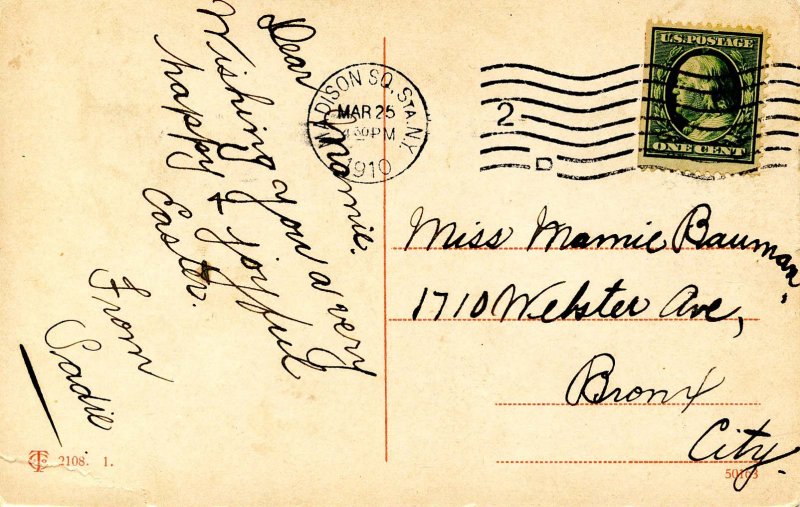 Dear Mamie.
Wishing you a very
happy & joyful
Easter.
From
Sadie
2108. 1.
MADISON SQ. STA. N.Y.
MAR 25
4 30 PM
1910
2
D
U.S. POSTAGE
ONE CENT
Miss Mamie Bauman,
1710 Webster Ave,
Bronx
City.
50163